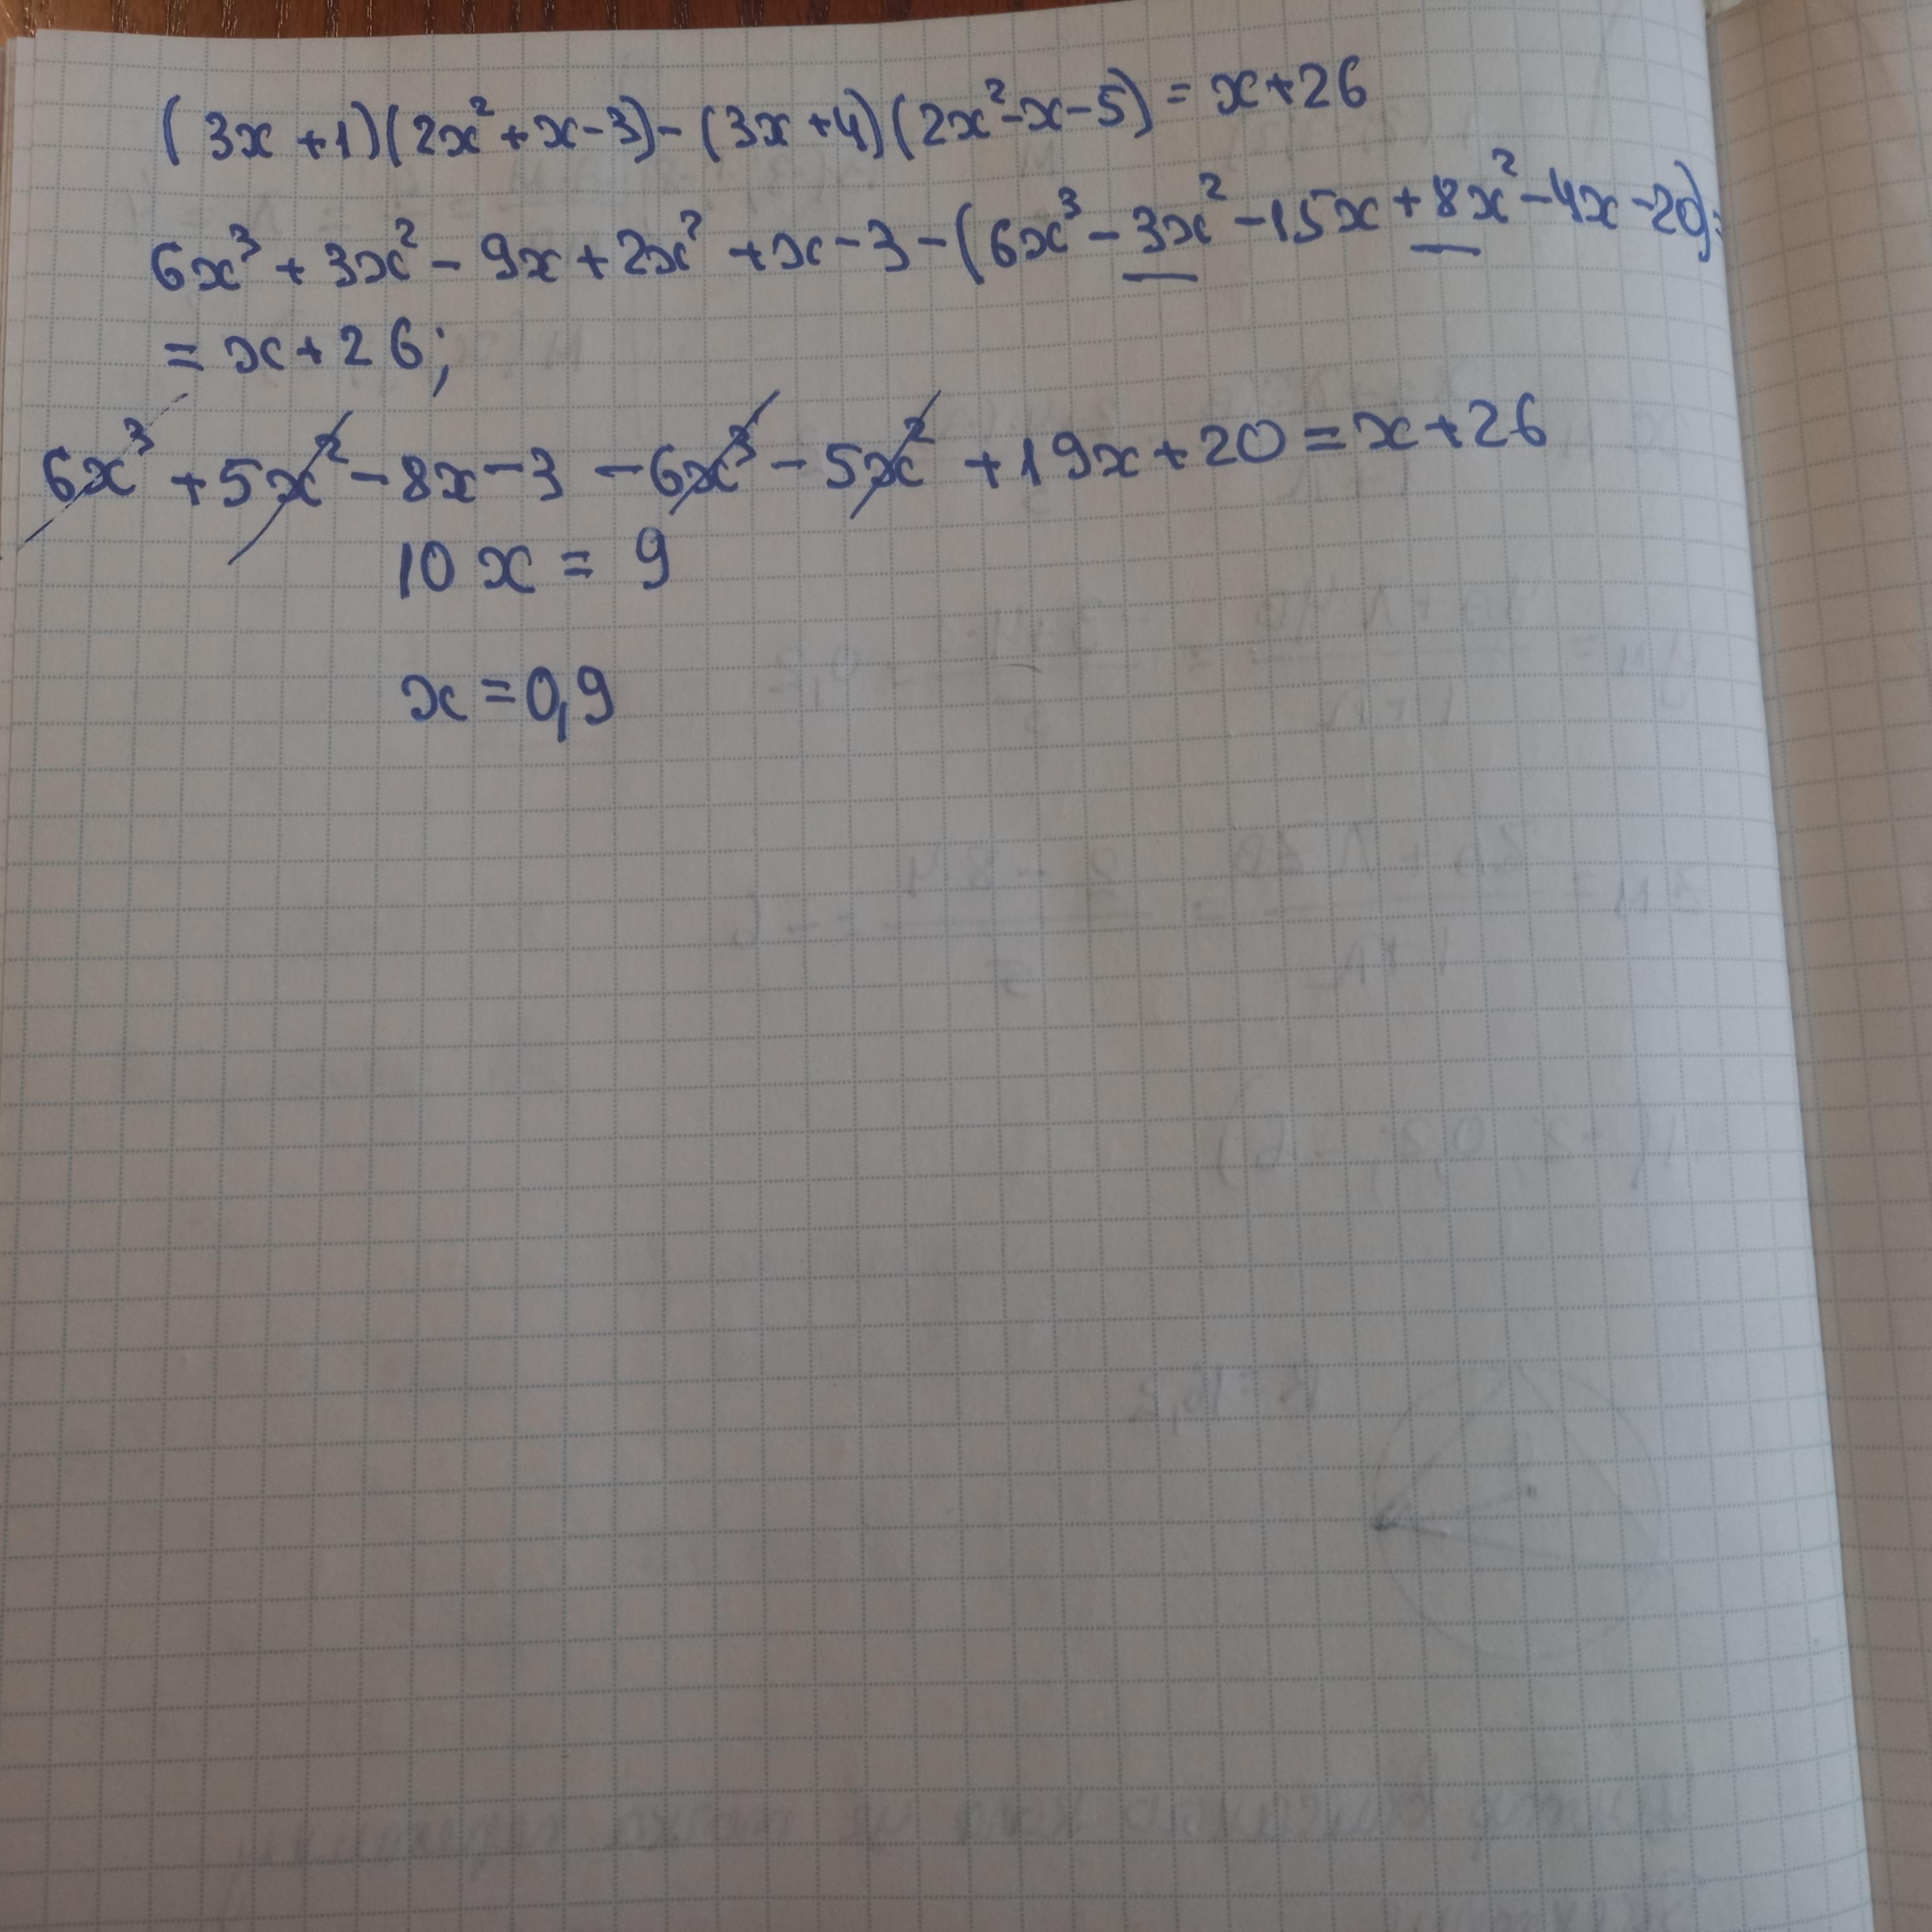 (3x+1)(2x²+x-3)-(3x+4)(2x²-x-5)=x+26
6x³+3x²-9x+2x²+x-3-(6x³-3x²-15x+8x²-4x-20)=
=x+26;
6x³+5x²-8x-3-6x³-5x²+19x+20=x+26
10x=9
x=0,9